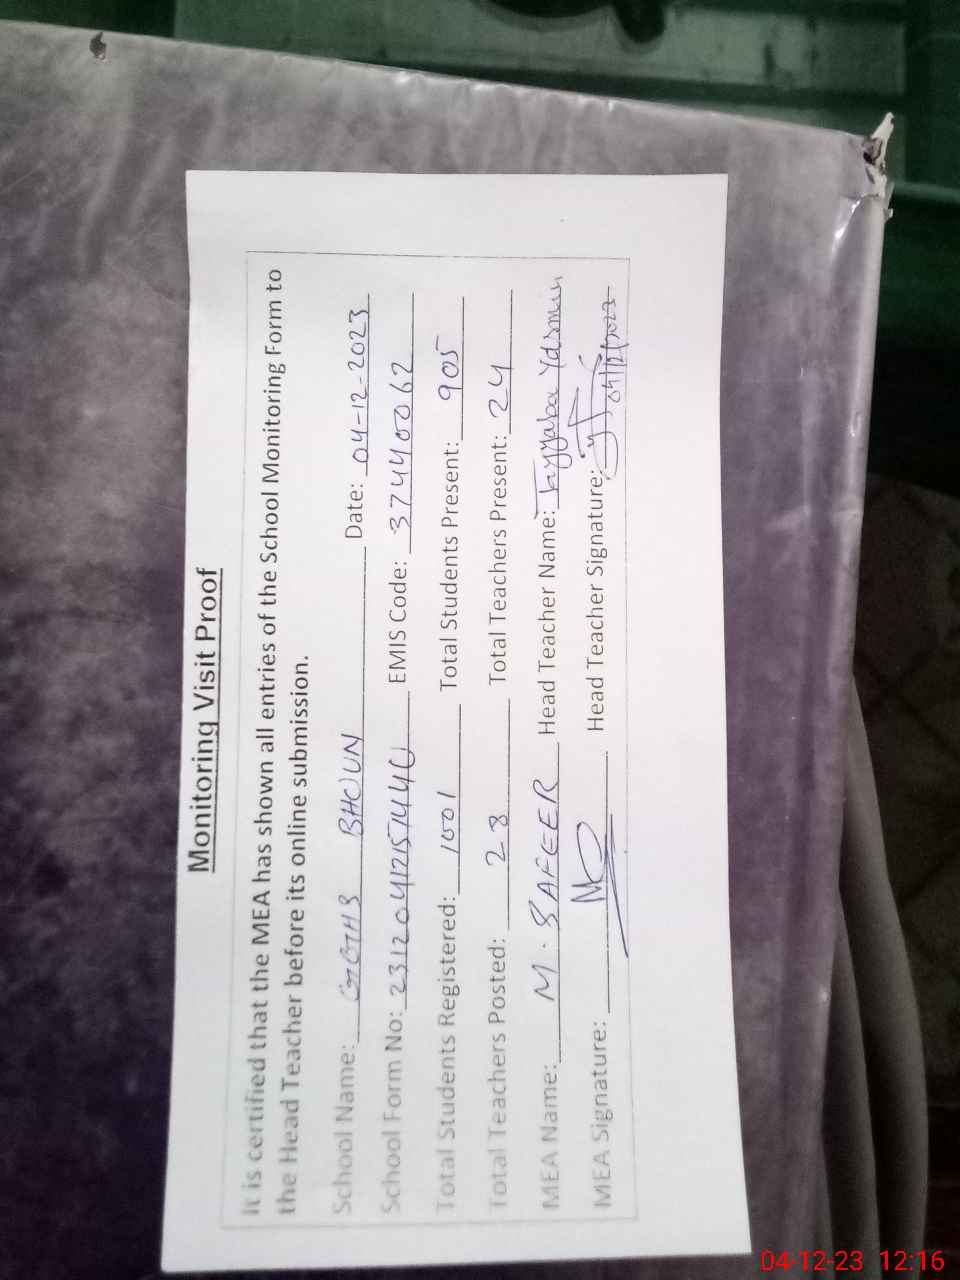 Monitoring Visit Proof
It is certified that the MEA has shown all entries of the School Monitoring Form to
the Head Teacher before its online submission.
School Name: GGHS BHOUN Date: 04-12-2023
School Form No: EMIS Code: 37440062
Total Students Registered: 1001 Total Students Present: 905
Total Teachers Posted: 28 Total Teachers Present: 24
MEA Name: M. SAFEER Head Teacher Name: Tayyaba Yasmin
MEA Signature: Head Teacher Signature: 04/12/2023
04-12-23 12:16